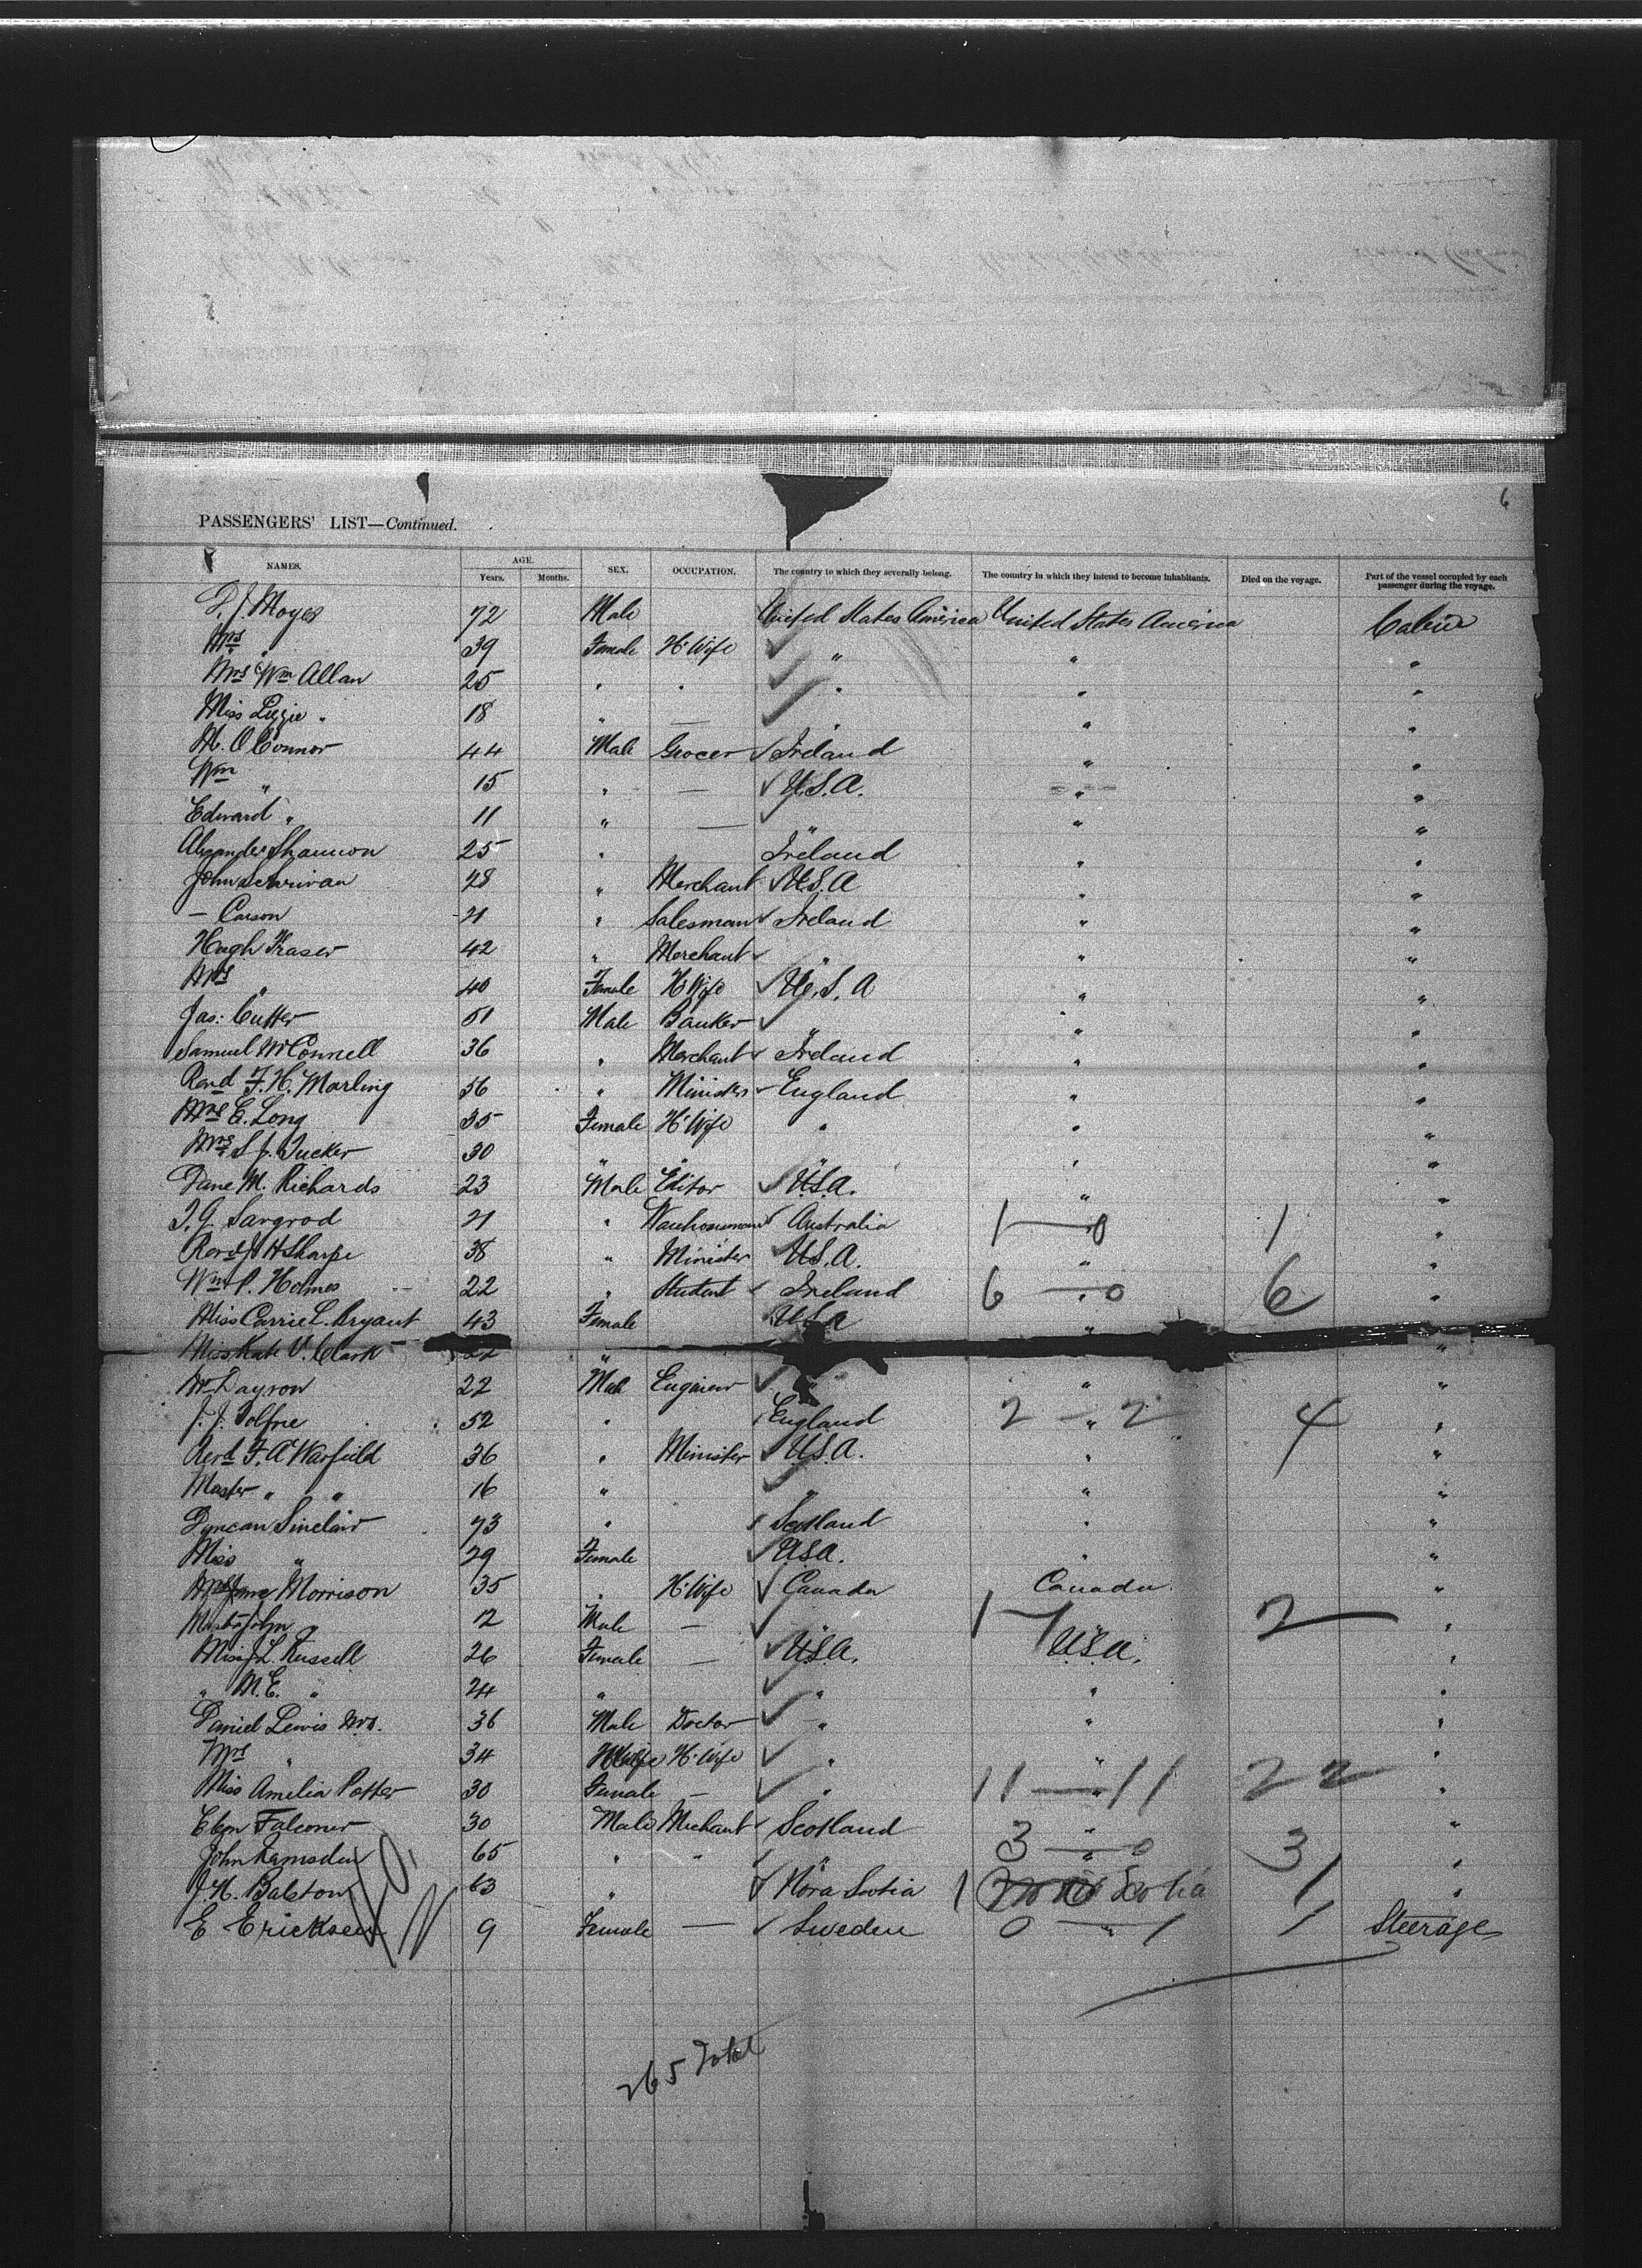 6
PASSENGERS' LIST—Continued.
NAMES. AGE. SEX. OCCUPATION. The country to which they severally belong. The country in which they intend to become inhabitants. Died on the voyage. Part of the vessel occupied by each passenger during the voyage.
Years. Months.
D. J. Moyes 72 Male United States America United States America Cabin
Mrs " 39 Female H. Wife " " "
Mrs Wm Allan 25 " " " " "
Miss Lizzie " 18 " — " " "
M. O'Connor 44 Male Grocer Ireland " "
Wm " 15 " — U.S.A. " "
Edward " 11 " — " " "
Alexander Shannon 25 " Ireland " "
John 48 " Merchant U.S.A " "
— Carson 21 " Salesman Ireland " "
Hugh Fraser 42 " Merchant " " "
Mrs " 40 Female H. Wife U.S.A " "
Jas: Cutter 51 Male Banker " " "
Samuel McConnell 36 " Merchant Ireland " "
Revd F. H. Marling 56 " Minister England " "
Mrs E. Long 35 Female H. Wife " " "
Mrs S. J. Tucker 30 " " " " "
Dane M. Richards 23 Male Editor U.S.A. " "
J. G. Sargrod 21 " Warehouseman Australia 1 — 0 1 "
Revd J. H Sharpe 38 " Minister U.S.A. " "
Wm P. Holmes 22 " Student Ireland 6 — 0 6 "
Miss Carrie L. Bryant 43 Female U.S.A " "
Miss Kate V. Clark 22 " "
22 Male Engineer " " "
J. J. 52 " England 2 — " 2 4 "
Revd F. A Warfield 36 " Minister U.S.A. " "
Master " " 16 " " " "
Duncan Sinclair 73 " Scotland " "
Miss " 29 Female U.S.A. " "
Mrs Jane Morrison 35 " H. Wife Canada Canada "
Master John " 12 Male — " 1 — 1 " 2 "
Miss J. L. Russell 26 Female — U.S.A. U.S.A. "
" M. E. " 24 " " " "
Daniel Lewis 36 Male Doctor " " "
Mrs " 34 H. Wife " " "
Miss Amelia Potter 30 Female — " 11 — " 11 22 "
Eben Falconer 30 Male Mechant Scotland " "
John Ramsden 65 " " " 3 — " 0 3 "
J. H. Balston 63 " Nova Scotia 1 Scotia 1 "
E Ericksen 9 Female — Sweden 0 — " 1 1 Steerage
265 Total